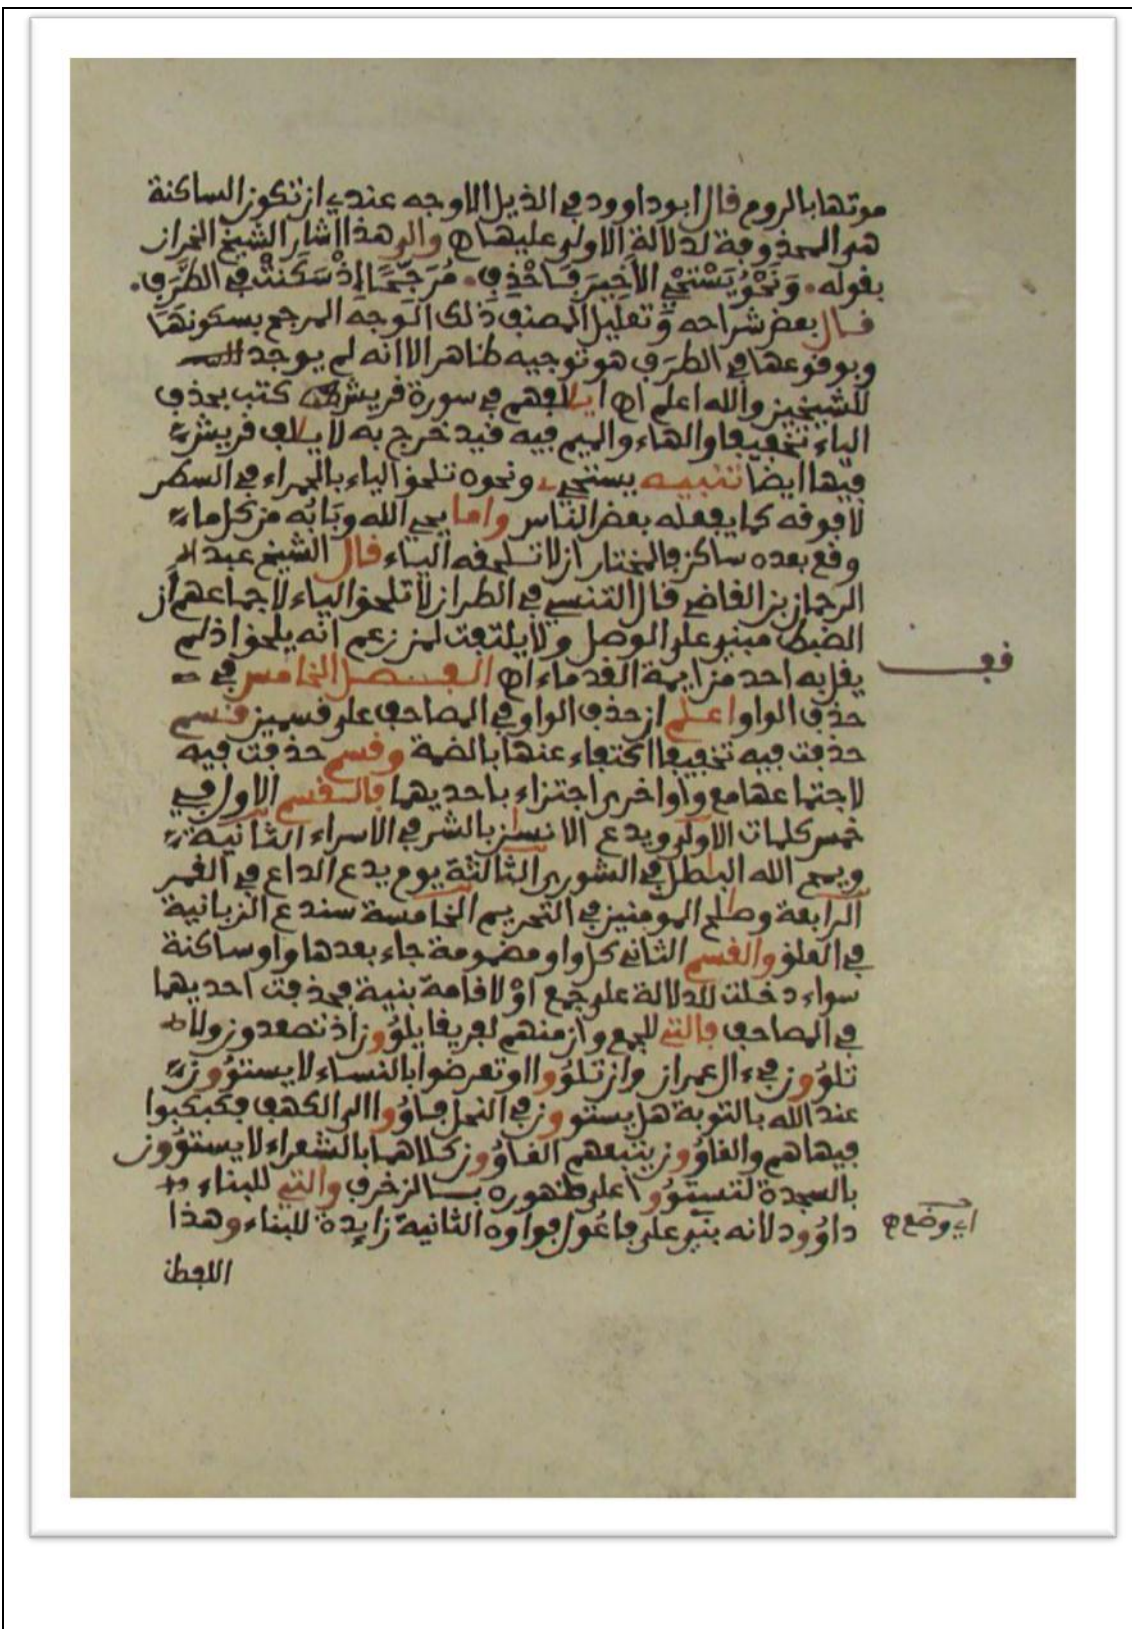 موتها بالروم قال ابو داوود في الذيل الاوجه عندي ان تكون الساكنة
هي المحذوفة لدلالة الاولى عليها اه والى هذا اشار الشيخ الخراز
بقوله • وَنَحْوُ يَسْتَحْيِ الأَخِيرَ فَاحْذِفِ • مُرَجَّحًا إِذْ سَكَنَتْ فِي الطَّرَفِ •
قال بعض شراحه وتعليل المصنف ذلك الوجه المرجح بسكونها
وبوقوعها في الطرف هو توجيه ظاهر الا انه لم يوجد
للشيخين والله اعلم اه ايلافهم في سورة قريش كتب بحذف
الياء تخفيفا والهاء والميم فيه قيد خرج به لايلاف قريش
فيها ايضا تنبيه يستحي ے ونحوه تلحق الياء بالحمراء في السطر
لا فوقه كما يفعله بعض الناس واما يحي الله وبابه من كل ما
وقع بعده ساكن فالمختار ان لا تلحقه الياء قال الشيخ عبد
الرحمان بن القاضي قال التنسي في الطراز لا تلحق الياء لاجماعهم ان
الضبط مبني على الوصل ولا يلتفت لمن زعم انه يلحق اذ لم
يقل به احد من ايمة القدماء اه الفصل الخامس في
حذف الواو اعلم ان حذف الواو في المصاحف على قسمين قسم
حذفت فيه تخفيفا اكتفاء عنها بالضمة وقسم حذفت فيه
لاجتماعها مع واو اخرى اجتزاء باحديهما فالقسم الاول في
خمس كلمات الاولى ويدع الانسان بالشر في الاسراء الثانية
ويمح الله البطل في الشورى الثالثة يوم يدع الداع في القمر
الرابعة وصلح المومنين في التحريم الخامسة سندع الزبانية
في العلق والقسم الثاني كل واو مضمومة جاء بعدها واو ساكنة
سواء دخلت للدلالة على جمع او لاقامة بنية فحذفت احديهما
في المصاحف فالتي للجمع وان منهم لفريقا يلوون اذ تصعدون ولا
تلوون في ءال عمران وان تلووا او تعرضوا بالنساء لا يستوون
عند الله بالتوبة هل يستوون في النحل فاووا الى الكهف فكبكبوا
فيها هم والغاوون يتبعهم الغاوون كلاهما بالشعراء لا يستوون
بالسجدة لتستووا على ظهوره بالزخرف والتي للبناء
داوود لانه بني على فاعول فواوه الثانية زايدة للبناء وهذا
اللفظ
قف
اي وضع ه